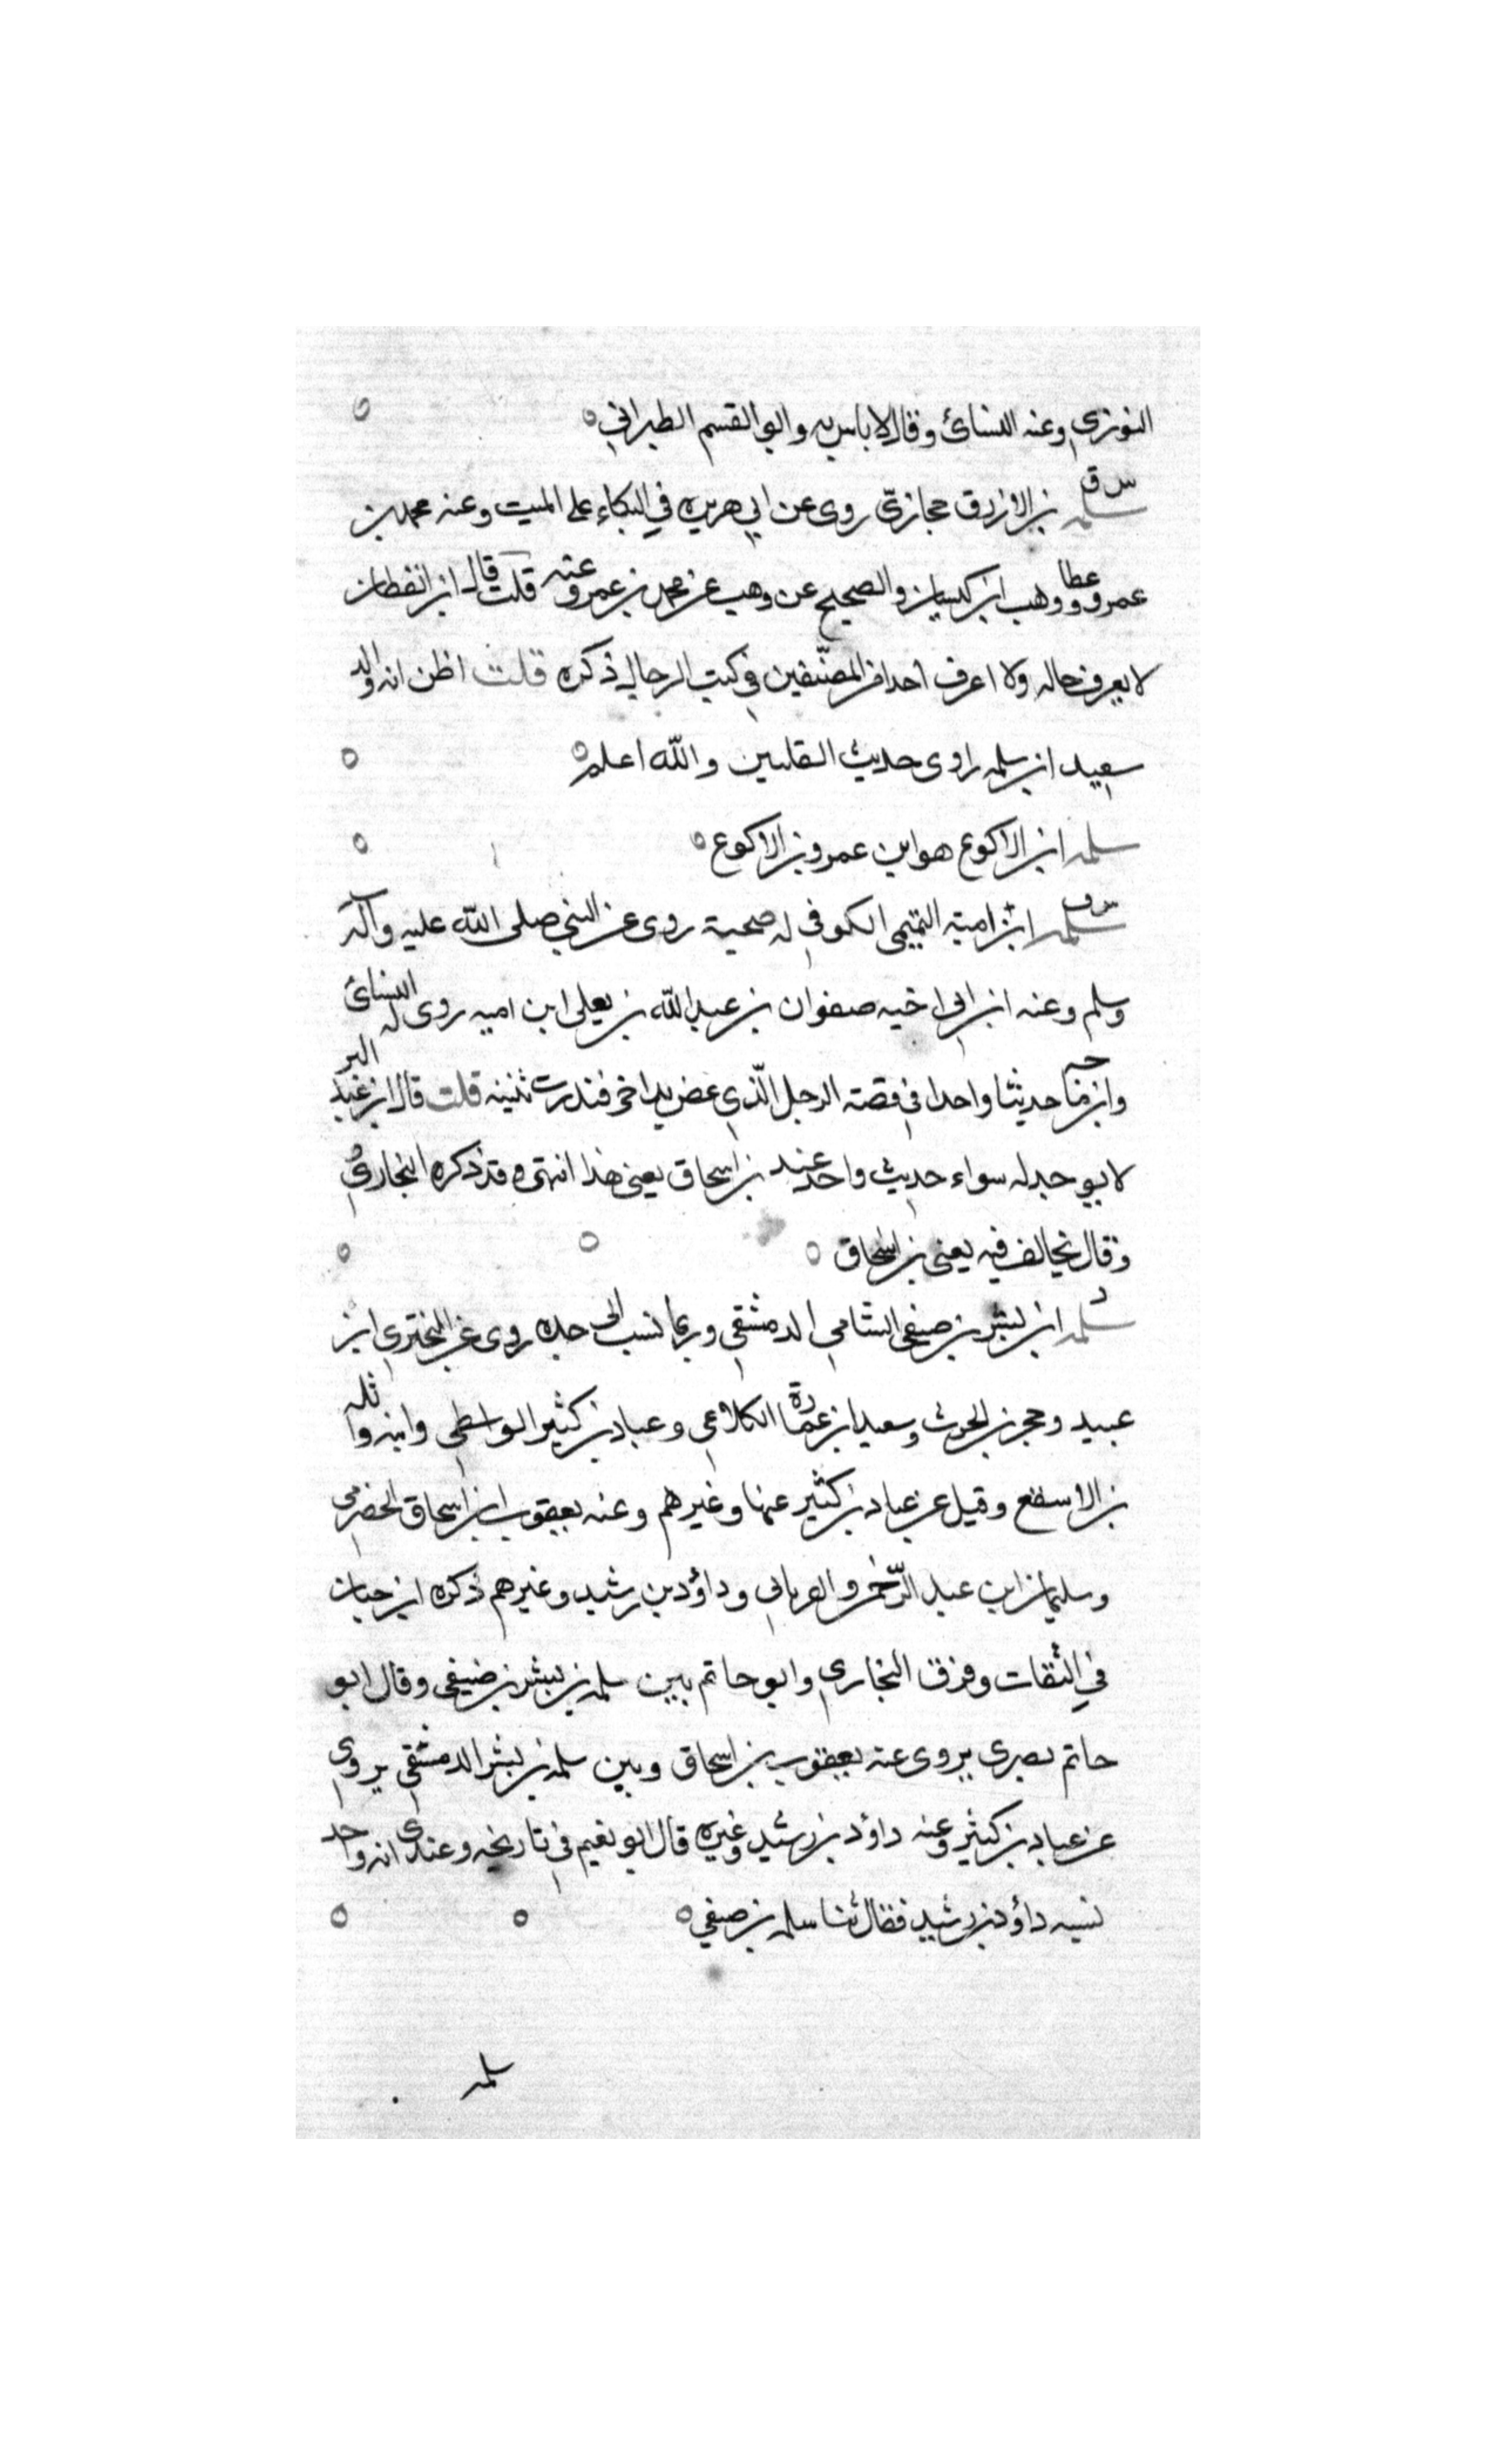 النوزى وعنه النسائ وقال لا باس به وابو القسم الطبراني
س ق سلمه بن الازرق حجازيّ روى عن ابي هريره في البكاء على الميت وعنه محمد بن
عمرو وعطا ووهب ابن كيسان والصحيح عن وهب عن محمد بن عمرو وعنه قلت قال ابن القطان
لا يعرف حاله ولا اعرف احدا من المصنّفين في كتب الرجال ذكره قلت اظن انه والد
سعيد ابن سلمه راوى حديث القلتين والله اعلم
سلمه ابن الاكوع هو ابن عمرو بن الاكوع
س ق سلمه ابن امية التميمى الكوفي له صحبة روى عن النبي صلى الله عليه وآله
وسلم وعنه ابن ابن اخيه صفوان بن عبد الله بن يعلى ابن اميه روى له النسائ
وابن ماجه حديثا واحدا في قصة الرجل الّذي عض يد اخر فندرت ثنيته قلت قال ابن عبد البر
لا يوجد له سواء حديث واحد عند بن اسحاق يعني هذا انتهى وقد ذكره البخاري
وقال يخالف فيه يعني بن اسحاق
د سلمه ابن بشر بن صيفي الشامي الدمشقي وربما نسب الى جده روى عن البختري ابن
عبيد وحجر بن الحرث وسعيد ابن عمارة الكلاعي وعباد بن كثير الواسطي وابنه واثله
بن الاسقع وقيل عن عباد بن كثير عنها وغيرهم وعنه يعقوب ابن اسحاق الحضرمي
وسليمان ابن عبد الرّحمن والفريابي وداؤد بن رشيد وغيرهم ذكره ابن حبان
في الثقات وفرق البخاري وابو حاتم بين سلمه بن بشر بن صيفي وقال ابو
حاتم بصرى يروى عنه يعقوب بن اسحاق وبين سلمه بن بشر الدمشقي يروى
عن عباد بن كثير وعنه داؤد بن رشيد وغيره قال ابو نعيم في تاريخه وعندى انه واحد
نسبه داؤد بن رشيد فقال ثنا سلمه بن صيفي
سلمه